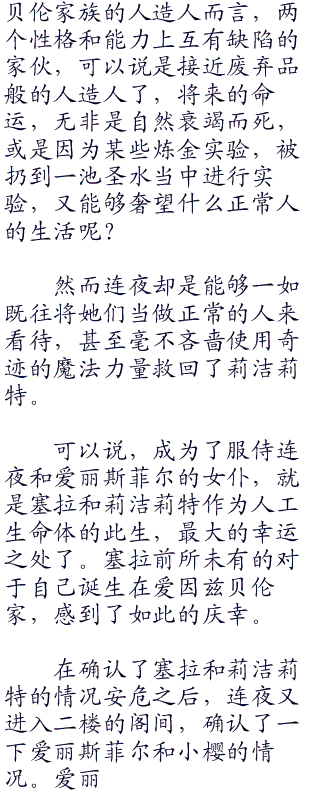 贝伦家族的人造人而言，两
个性格和能力上互有缺陷的
家伙，可以说是接近废弃品
般的人造人了，将来的命
运，无非是自然衰竭而死，
或是因为某些炼金实验，被
扔到一池圣水当中进行实
验，又能够奢望什么正常人
的生活呢？
然而连夜却是能够一如
既往将她们当做正常的人来
看待，甚至毫不吝啬使用奇
迹的魔法力量救回了莉洁莉
特。
可以说，成为了服侍连
夜和爱丽斯菲尔的女仆，就
是塞拉和莉洁莉特作为人工
生命体的此生，最大的幸运
之处了。塞拉前所未有的对
于自己诞生在爱因兹贝伦
家，感到了如此的庆幸。
在确认了塞拉和莉洁莉
特的情况安危之后，连夜又
进入二楼的阁间，确认了一
下爱丽斯菲尔和小樱的情
况。爱丽